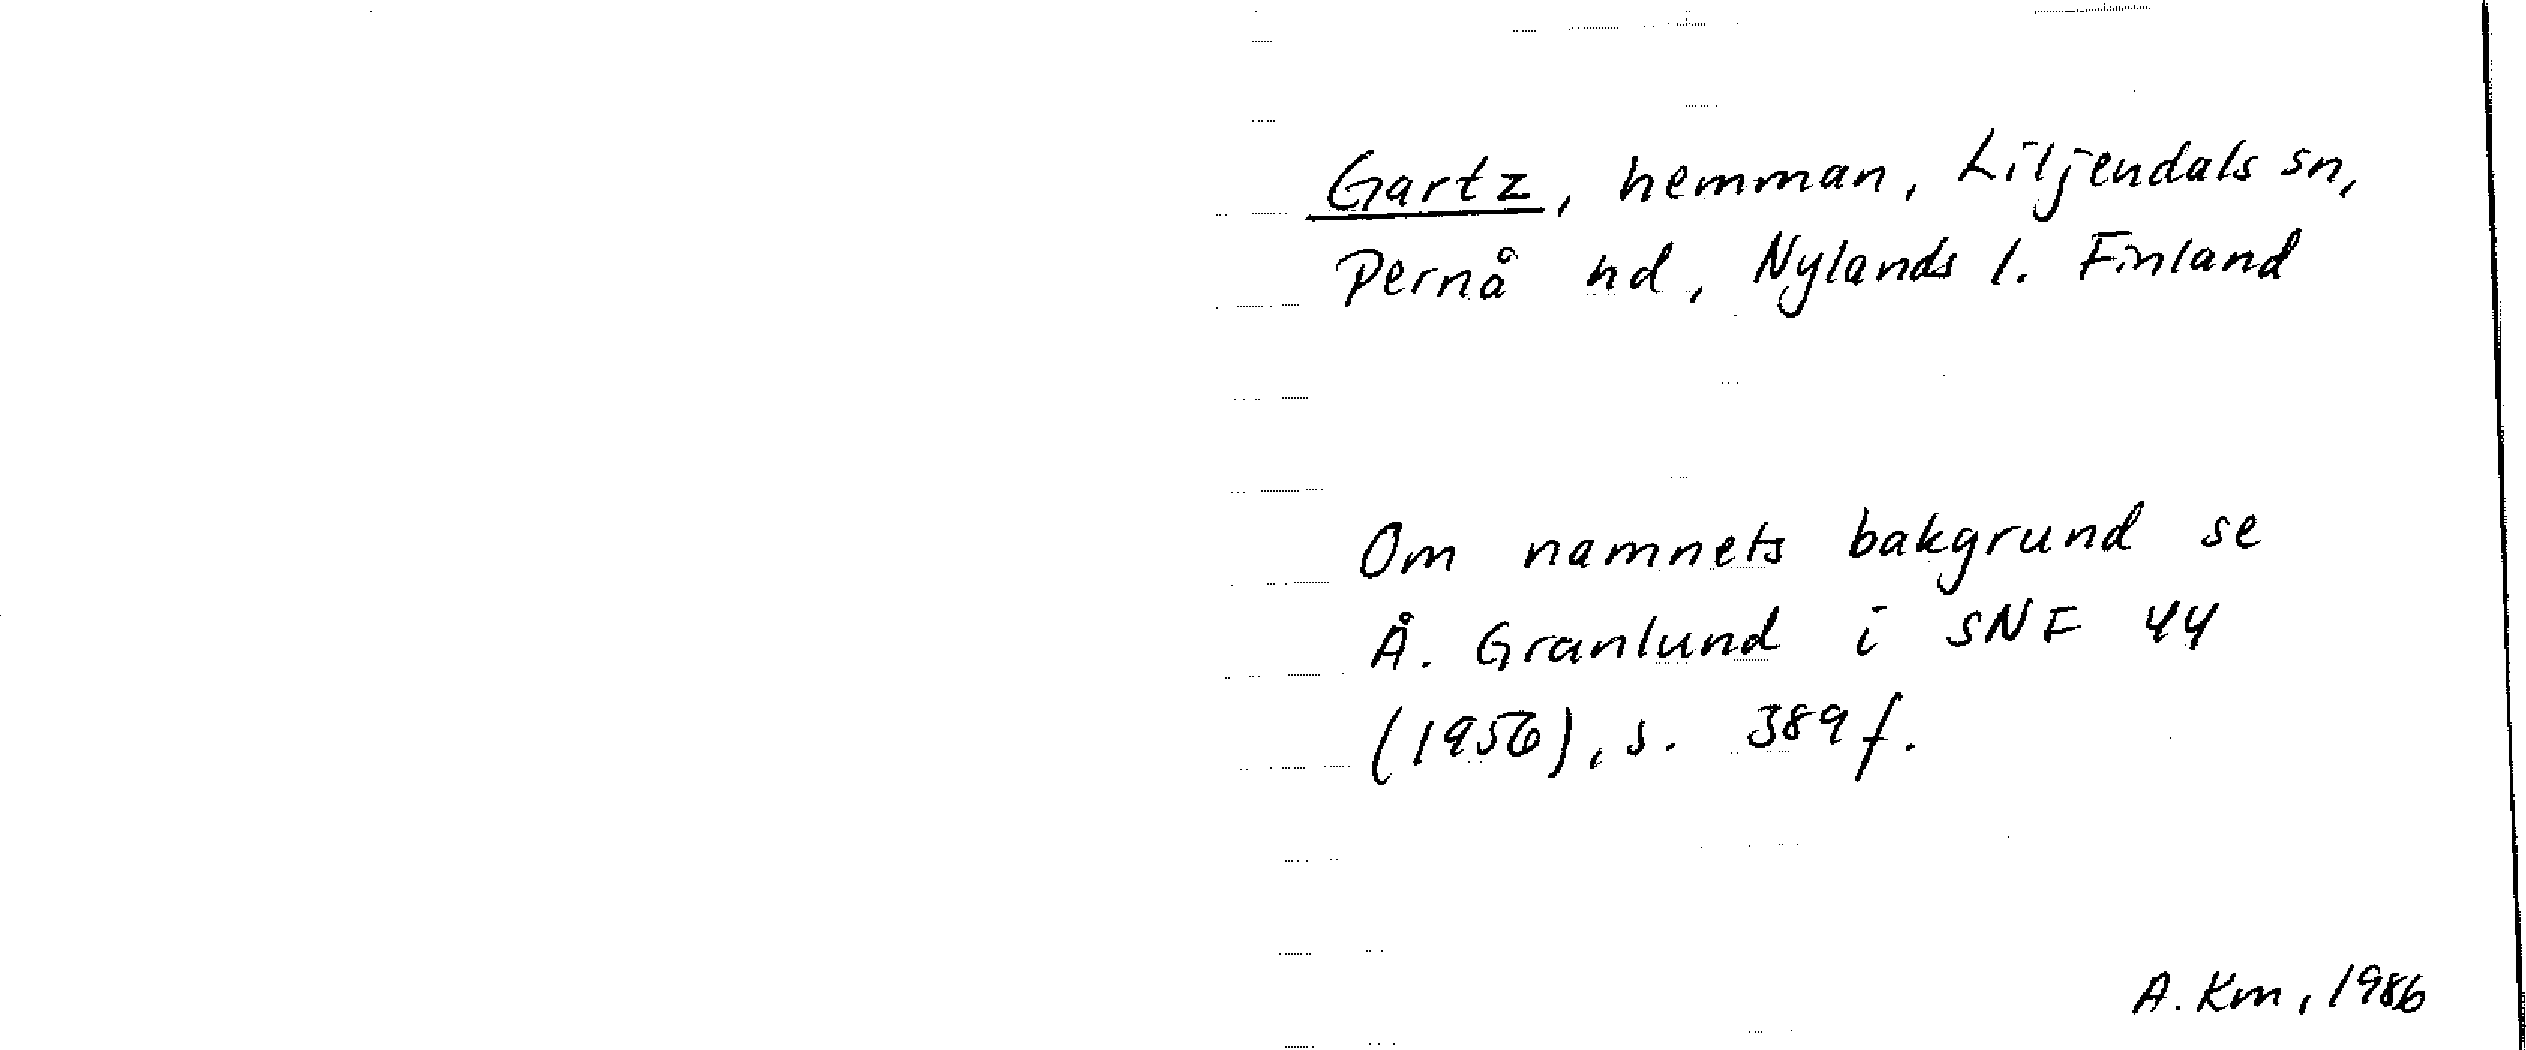 Gartz, hemman, Liljendals sn,
Pernå hd, Nylands l. Finland
Om namnets bakgrund se
Å. Granlund i SNF 44
(1956), s. 389 f.
A. Km, 1986